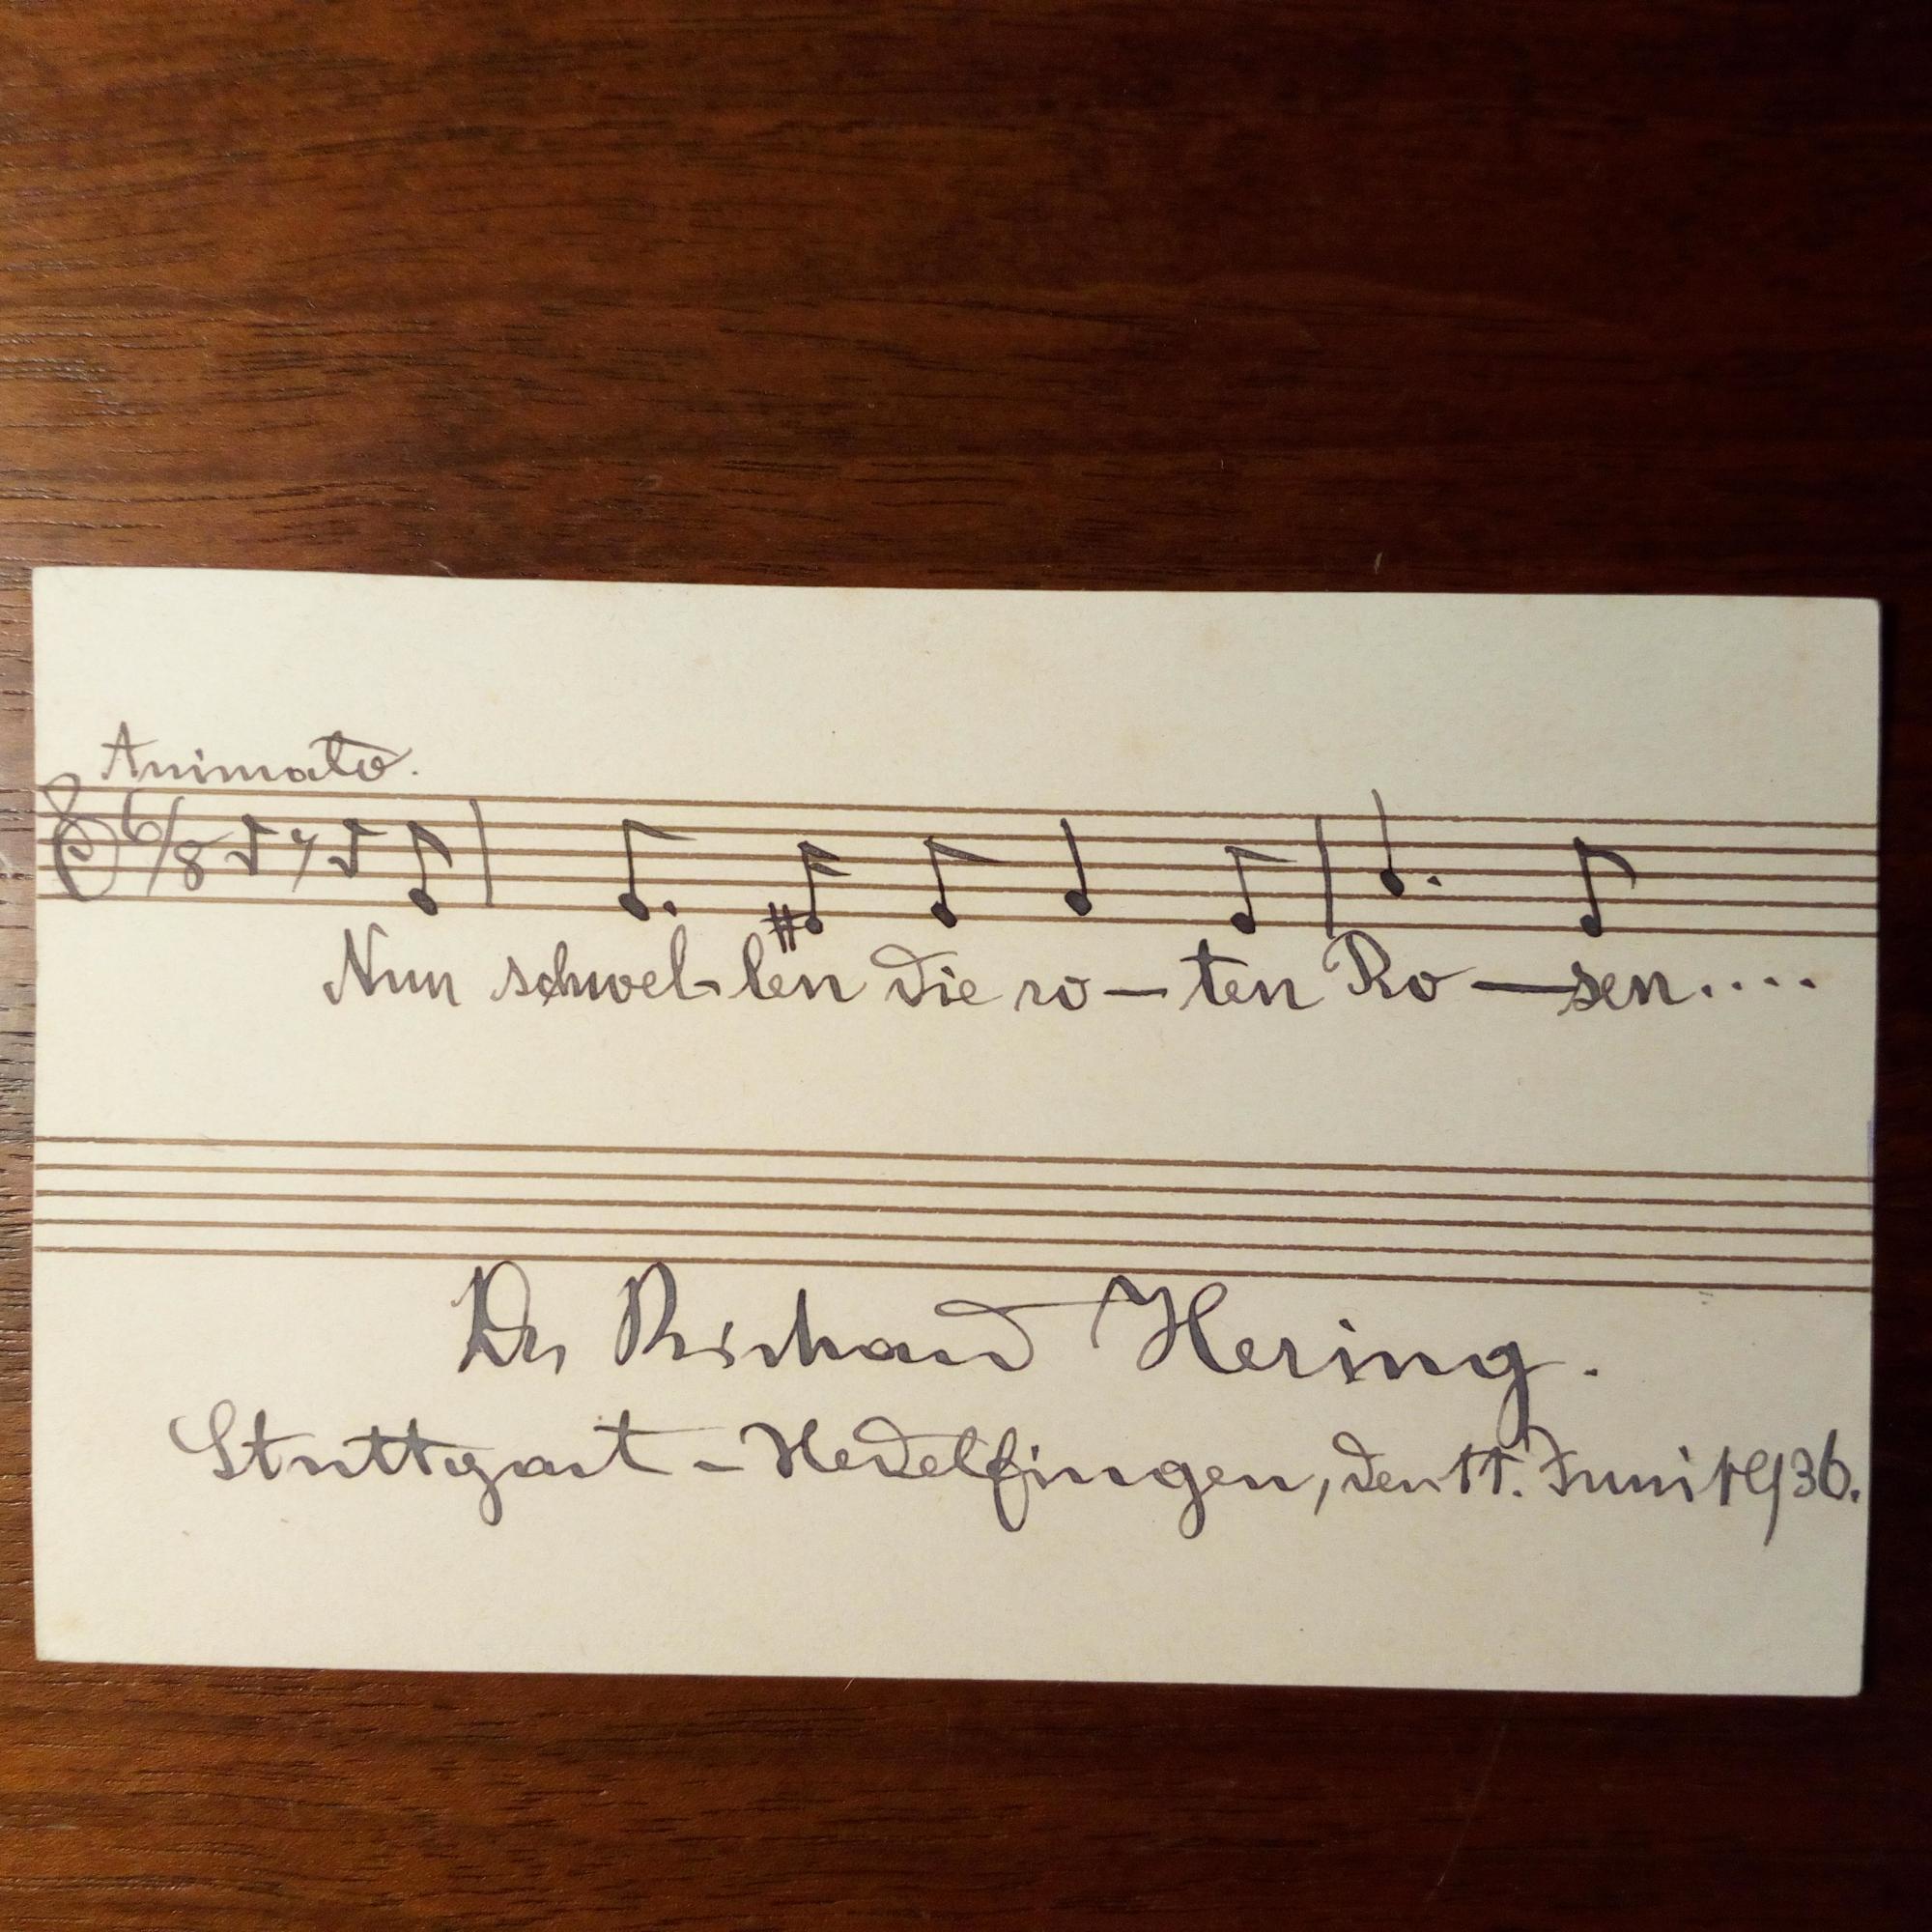 Animato.
6/8
Nun schwel-len die ro-ten Ro-sen....
Dr Richard Hering.
Stuttgart-Hedelfingen, den 11. Juni 1936.